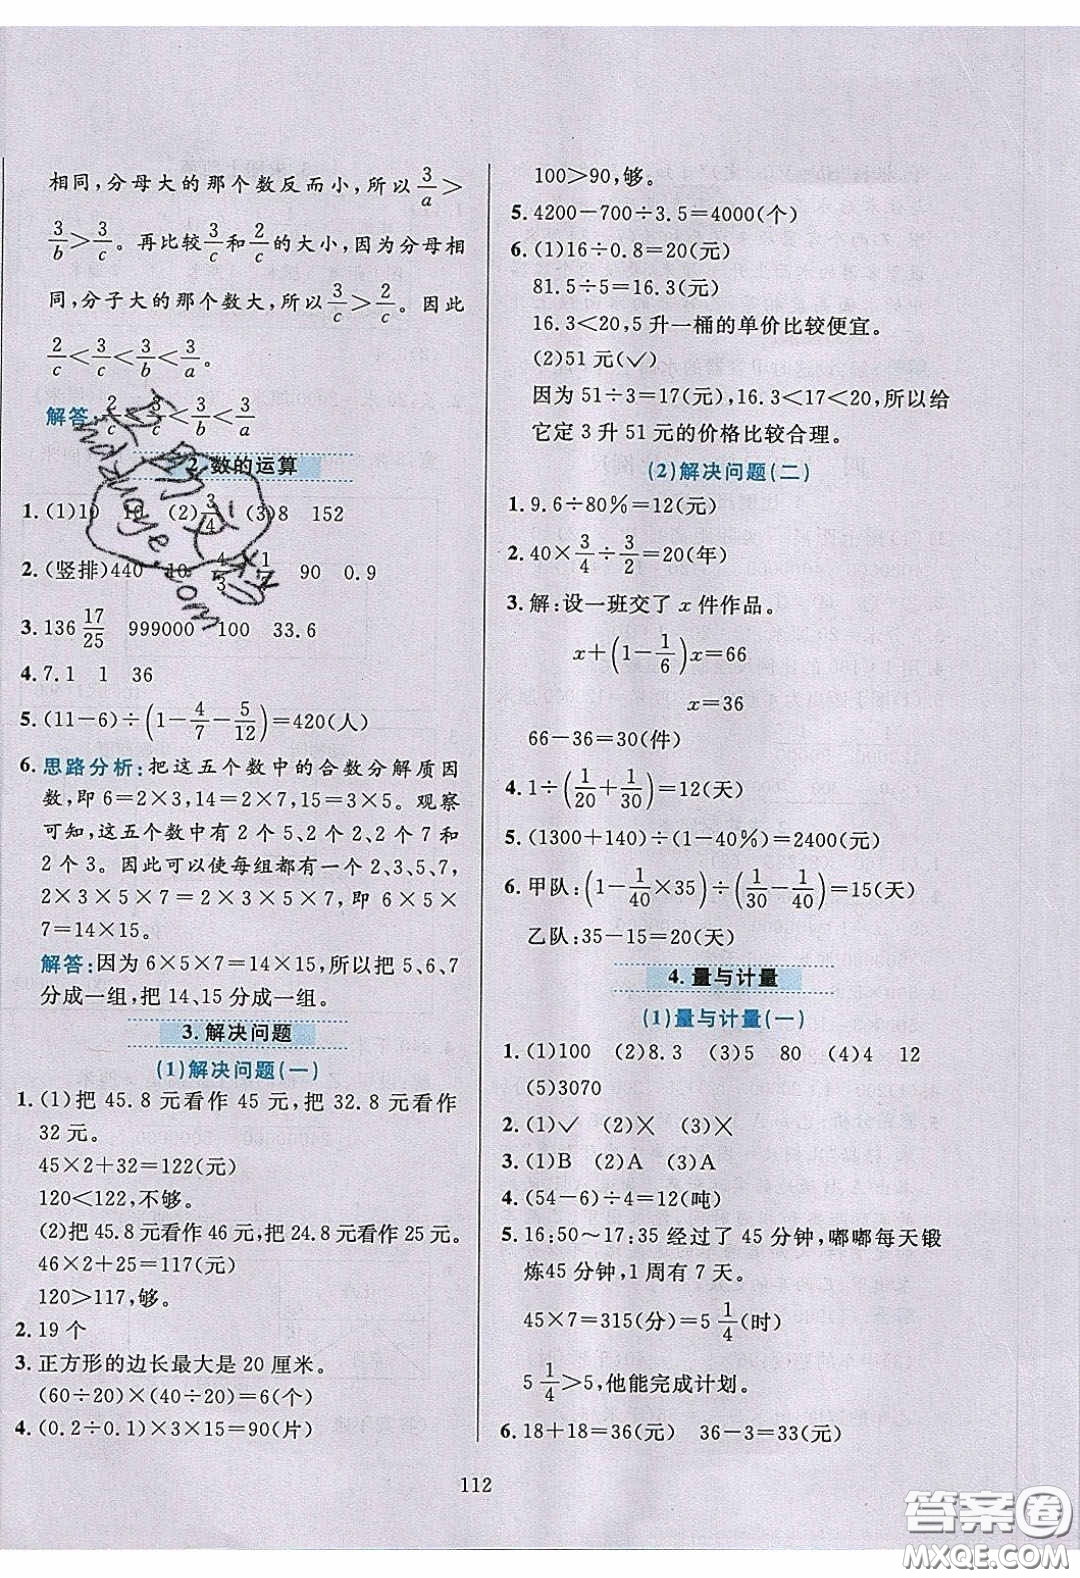 相同,分母大的那个数反而小,所以3/a>
3/b>3/c。再比较3/c和2/c的大小,因为分母相
同,分子大的那个数大,所以3/c>2/c。因此
2/c<3/c<3/b<3/a。
解答:2/c<3/c<3/b<3/a
2.数的运算
1.(1)10 10 (2)3/4 (3)8 152
2.(竖排)440 10 4/3 1/7 90 0.9
3.136 17/25 999000 100 33.6
4.7.1 1 36
5.(11-6)÷(1-4/7-5/12)=420(人)
6.思路分析:把这五个数中的合数分解质因
数,即6=2×3,14=2×7,15=3×5。观察
可知,这五个数中有2个5、2个2、2个7和
2个3。因此可以使每组都有一个2、3、5、7,
2×3×5×7=2×3×5×7,即6×5×
7=14×15。
解答:因为6×5×7=14×15,所以把5、6、7
分成一组,把14、15分成一组。
3.解决问题
(1)解决问题(一)
1.(1)把45.8元看作45元,把32.8元看作
32元。
45×2+32=122(元)
120<122,不够。
(2)把45.8元看作46元,把24.8元看作25元。
46×2+25=117(元)
120>117,够。
2.19个
3.正方形的边长最大是20厘米。
(60÷20)×(40÷20)=6(个)
4.(0.2÷0.1)×3×15=90(片)
100>90,够。
5.4200-700÷3.5=4000(个)
6.(1)16÷0.8=20(元)
81.5÷5=16.3(元)
16.3<20,5升一桶的单价比较便宜。
(2)51元(✓)
因为51÷3=17(元),16.3<17<20,所以给
它定3升51元的价格比较合理。
(2)解决问题(二)
1.9.6÷80%=12(元)
2.40×3/4÷3/2=20(年)
3.解:设一班交了x件作品。
x+(1-1/6)x=66
x=36
66-36=30(件)
4.1÷(1/20+1/30)=12(天)
5.(1300+140)÷(1-40%)=2400(元)
6.甲队:(1-1/40×35)÷(1/30-1/40)=15(天)
乙队:35-15=20(天)
4.量与计量
(1)量与计量(一)
1.(1)100 (2)8.3 (3)5 80 (4)4 12
(5)3070
2.(1)✓ (2)× (3)×
3.(1)B (2)A (3)A
4.(54-6)÷4=12(吨)
5.16:50~17:35经过了45分钟,嘟嘟每天锻
炼45分钟,1周有7天。
45×7=315(分)=5 1/4(时)
5 1/4>5,他能完成计划。
6.18+18=36(元) 36-3=33(元)
112
答案圈
MXQE.COM